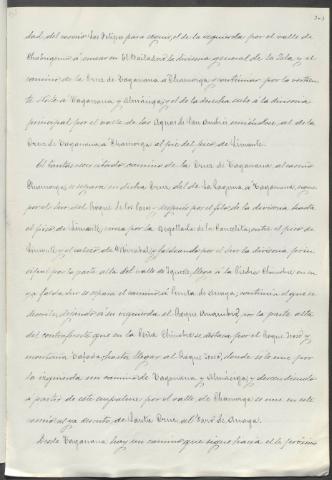 dad, del caserío Las Ortigas para seguir, el de la izquierda por el valle de
a cruzar en El Bailadero la divisoria general de la Isla y el
camino de la Cruz de Taganana a Chamorga y continuar por la vertien-
te Norte a Taganana y Almáciga; y el de la derecha sube a la divisoria
principal por el valle de las Aguas de San Andrés uniéndose, al de la
Cruz de Taganana a Chamorga al pie del pico de Limante.
El tantas veces citado camino de la Cruz de Taganana, al caserío
Chamorga, se separa en dicha Cruz del de La Laguna a Taganana, sigue
por el Sur del Roque de los Pasos y después por el filo de la divisoria hasta
el pico de Limante, cruza por la degollada de la Cancelita, entre el pico de
Limante y el cabezo de y faldeando por el Sur la divisoria prin-
cipal por la parte alta del valle de Igueste, llega a la Piedra Chinobre en cu-
ya falda Sur se separa el camino a Punta de Anaga; continúa el que se
describe dejando a su izquierda el Roque Anambro, por la parte alta
del contrafuerte que en la Peña Chinobre se destaca por el Roque
y montaña Tafada, hasta llegar al Roque donde se le une por
la izquierda un camino de Taganana y Almáciga y descendiendo
a partir de este empalme por el valle de Chamorga se une en este
caserío al ya descrito, de Santa Cruz al Faro de Anaga.
Desde Taganana hay un camino que sigue hacia el E. próximo